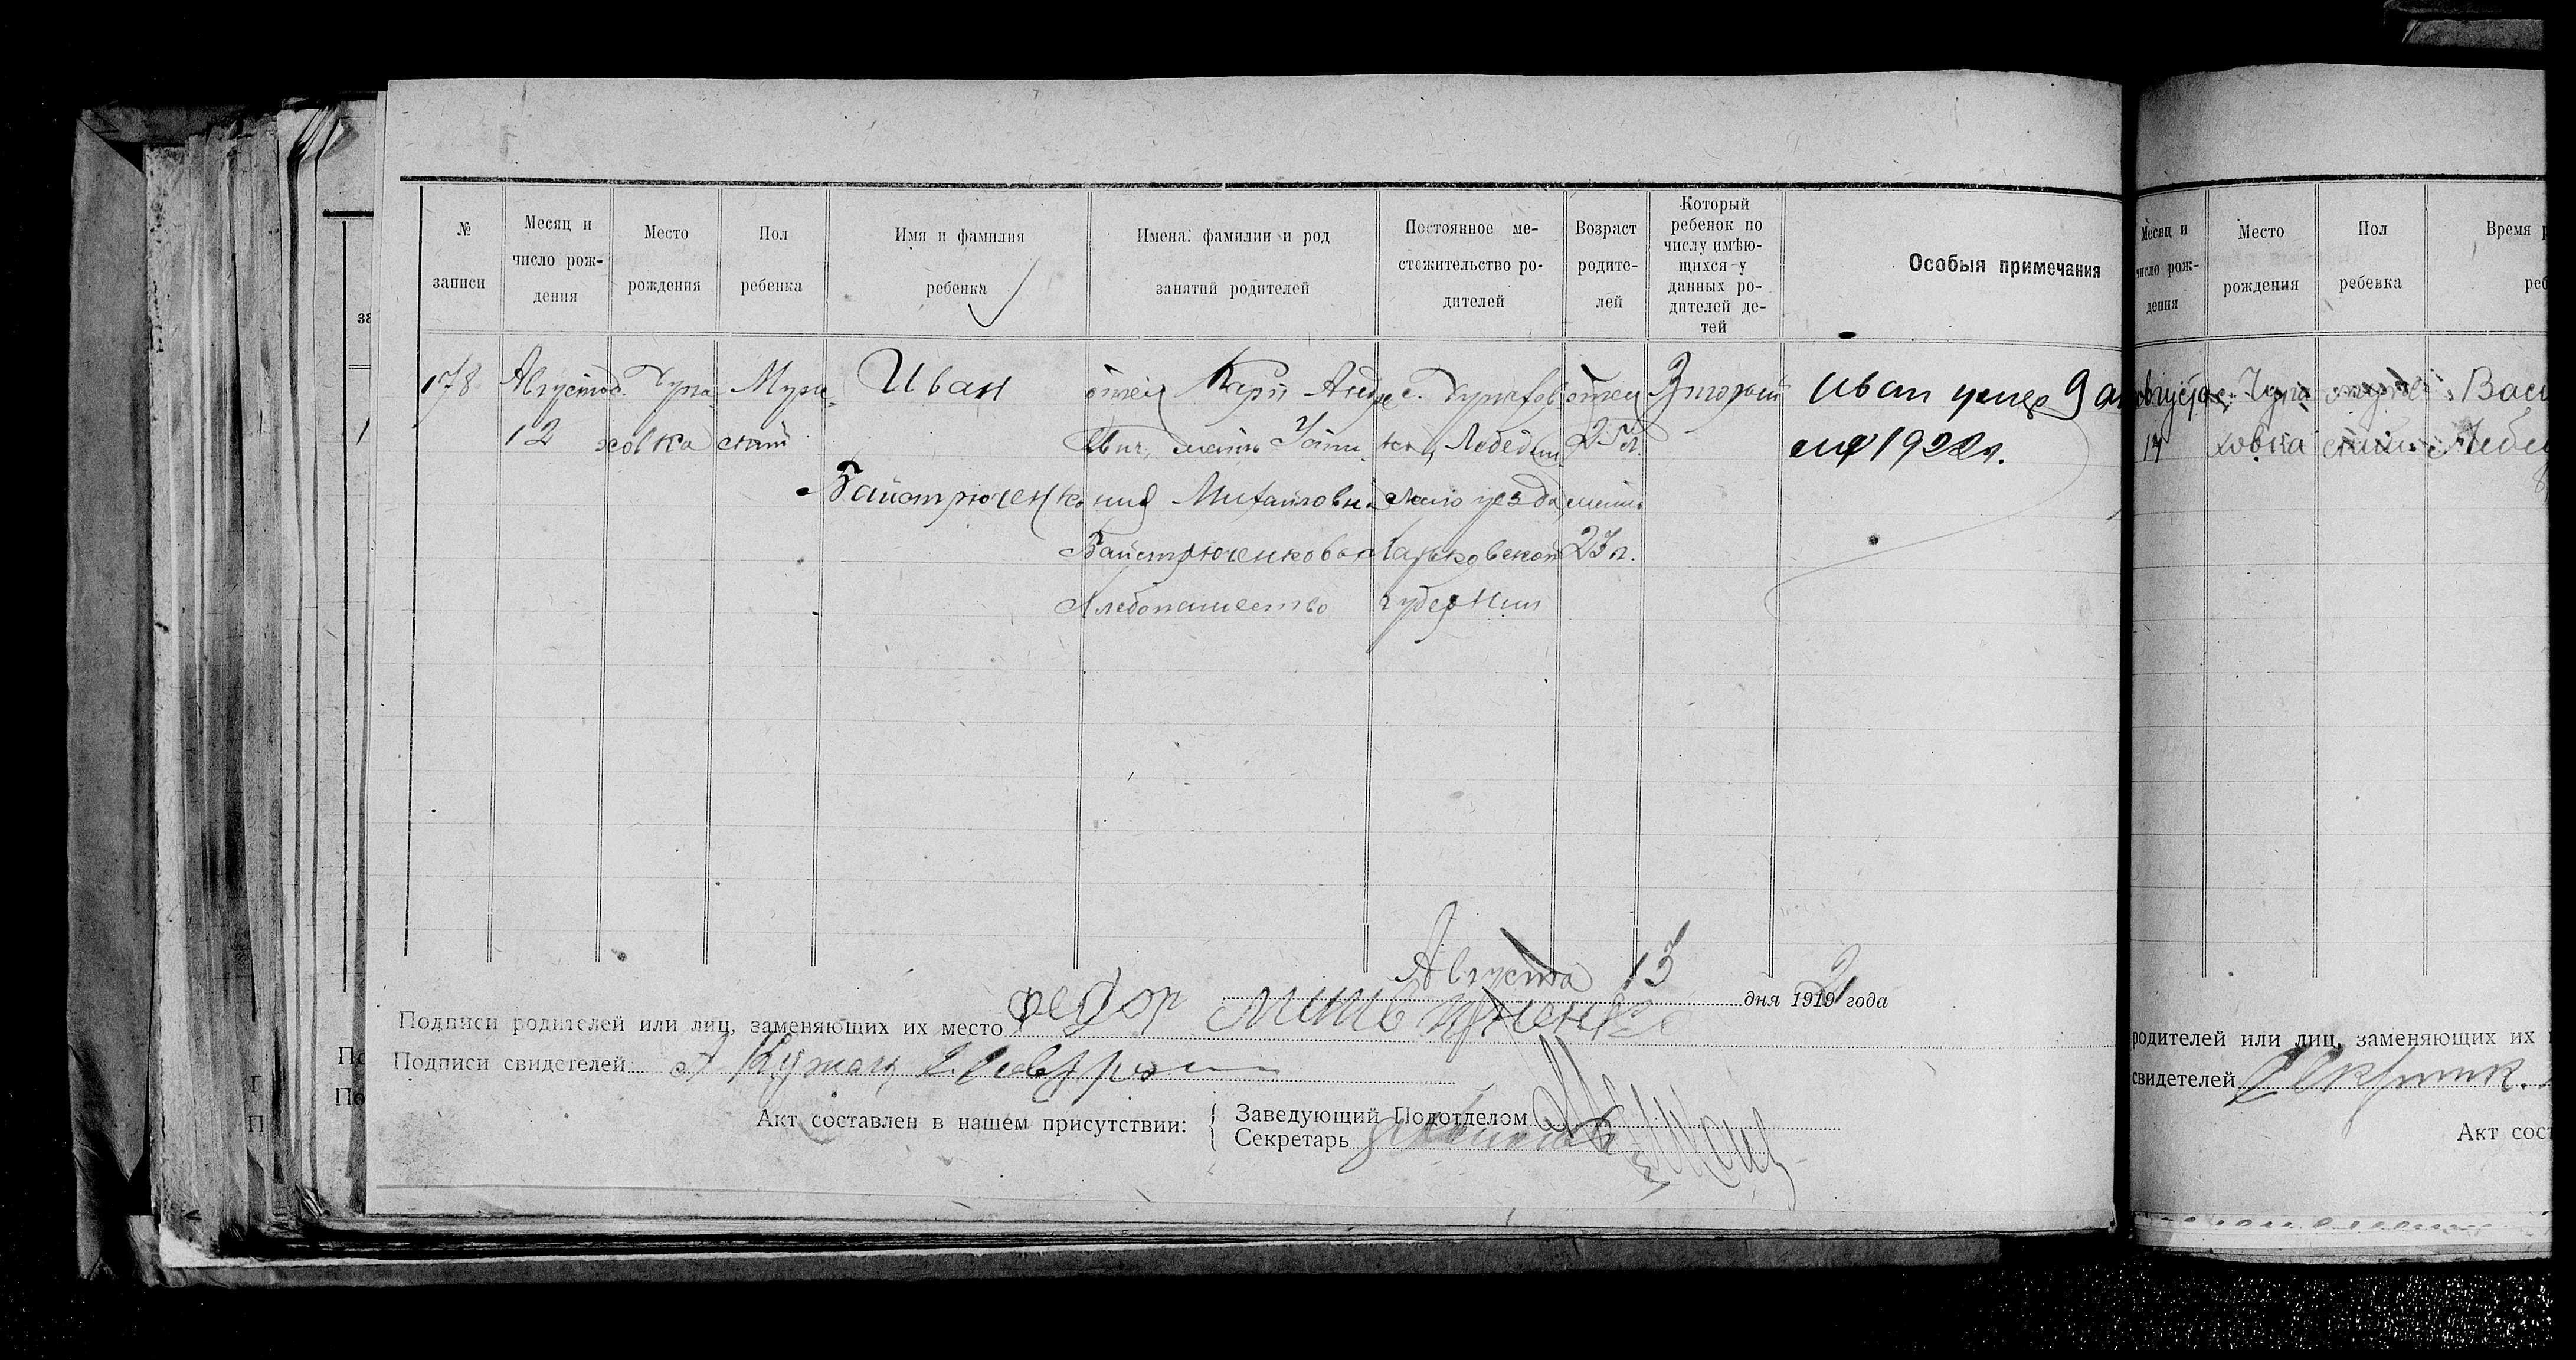 № записи
Месяц и число рождения
Место рождения
Пол ребенка
Имя и фамилия ребенка
Имена: фамилии и род занятий родителей
Постоянное местожительство родителей
Возраст родителей
Который ребенок по числу имѣющихся у данных родителей детей
Особыя примечания
178
Август
12
с. Чупа
ховка
Муж
ской
Иван
Байстрюченко
отец Карп Андре
евич, мать Усти
ния Михайловна
Байстрюченкова
Хлебопашество
с. Чупахов
ка, Лебедин
ского уезда
Харьковской
губернии
отец
25 л.
мать
23 л.
Второй
Иван умер 9 ап
еля 1922 г.
Августа 13 дня 1919 21 года
Подписи родителей или лиц, заменяющих их место Федор
Подписи свидетелей
Акт составлен в нашем присутствии:
Заведующий Подотделом
Секретарь
Месяц и число рождения
Место рождения
Пол ребенка
Время р
реб
Августа
14
с. Чупа
ховка
муж
ской
Васи
Лебед
родителей или лиц, заменяющих их
свидетелей
Акт сост